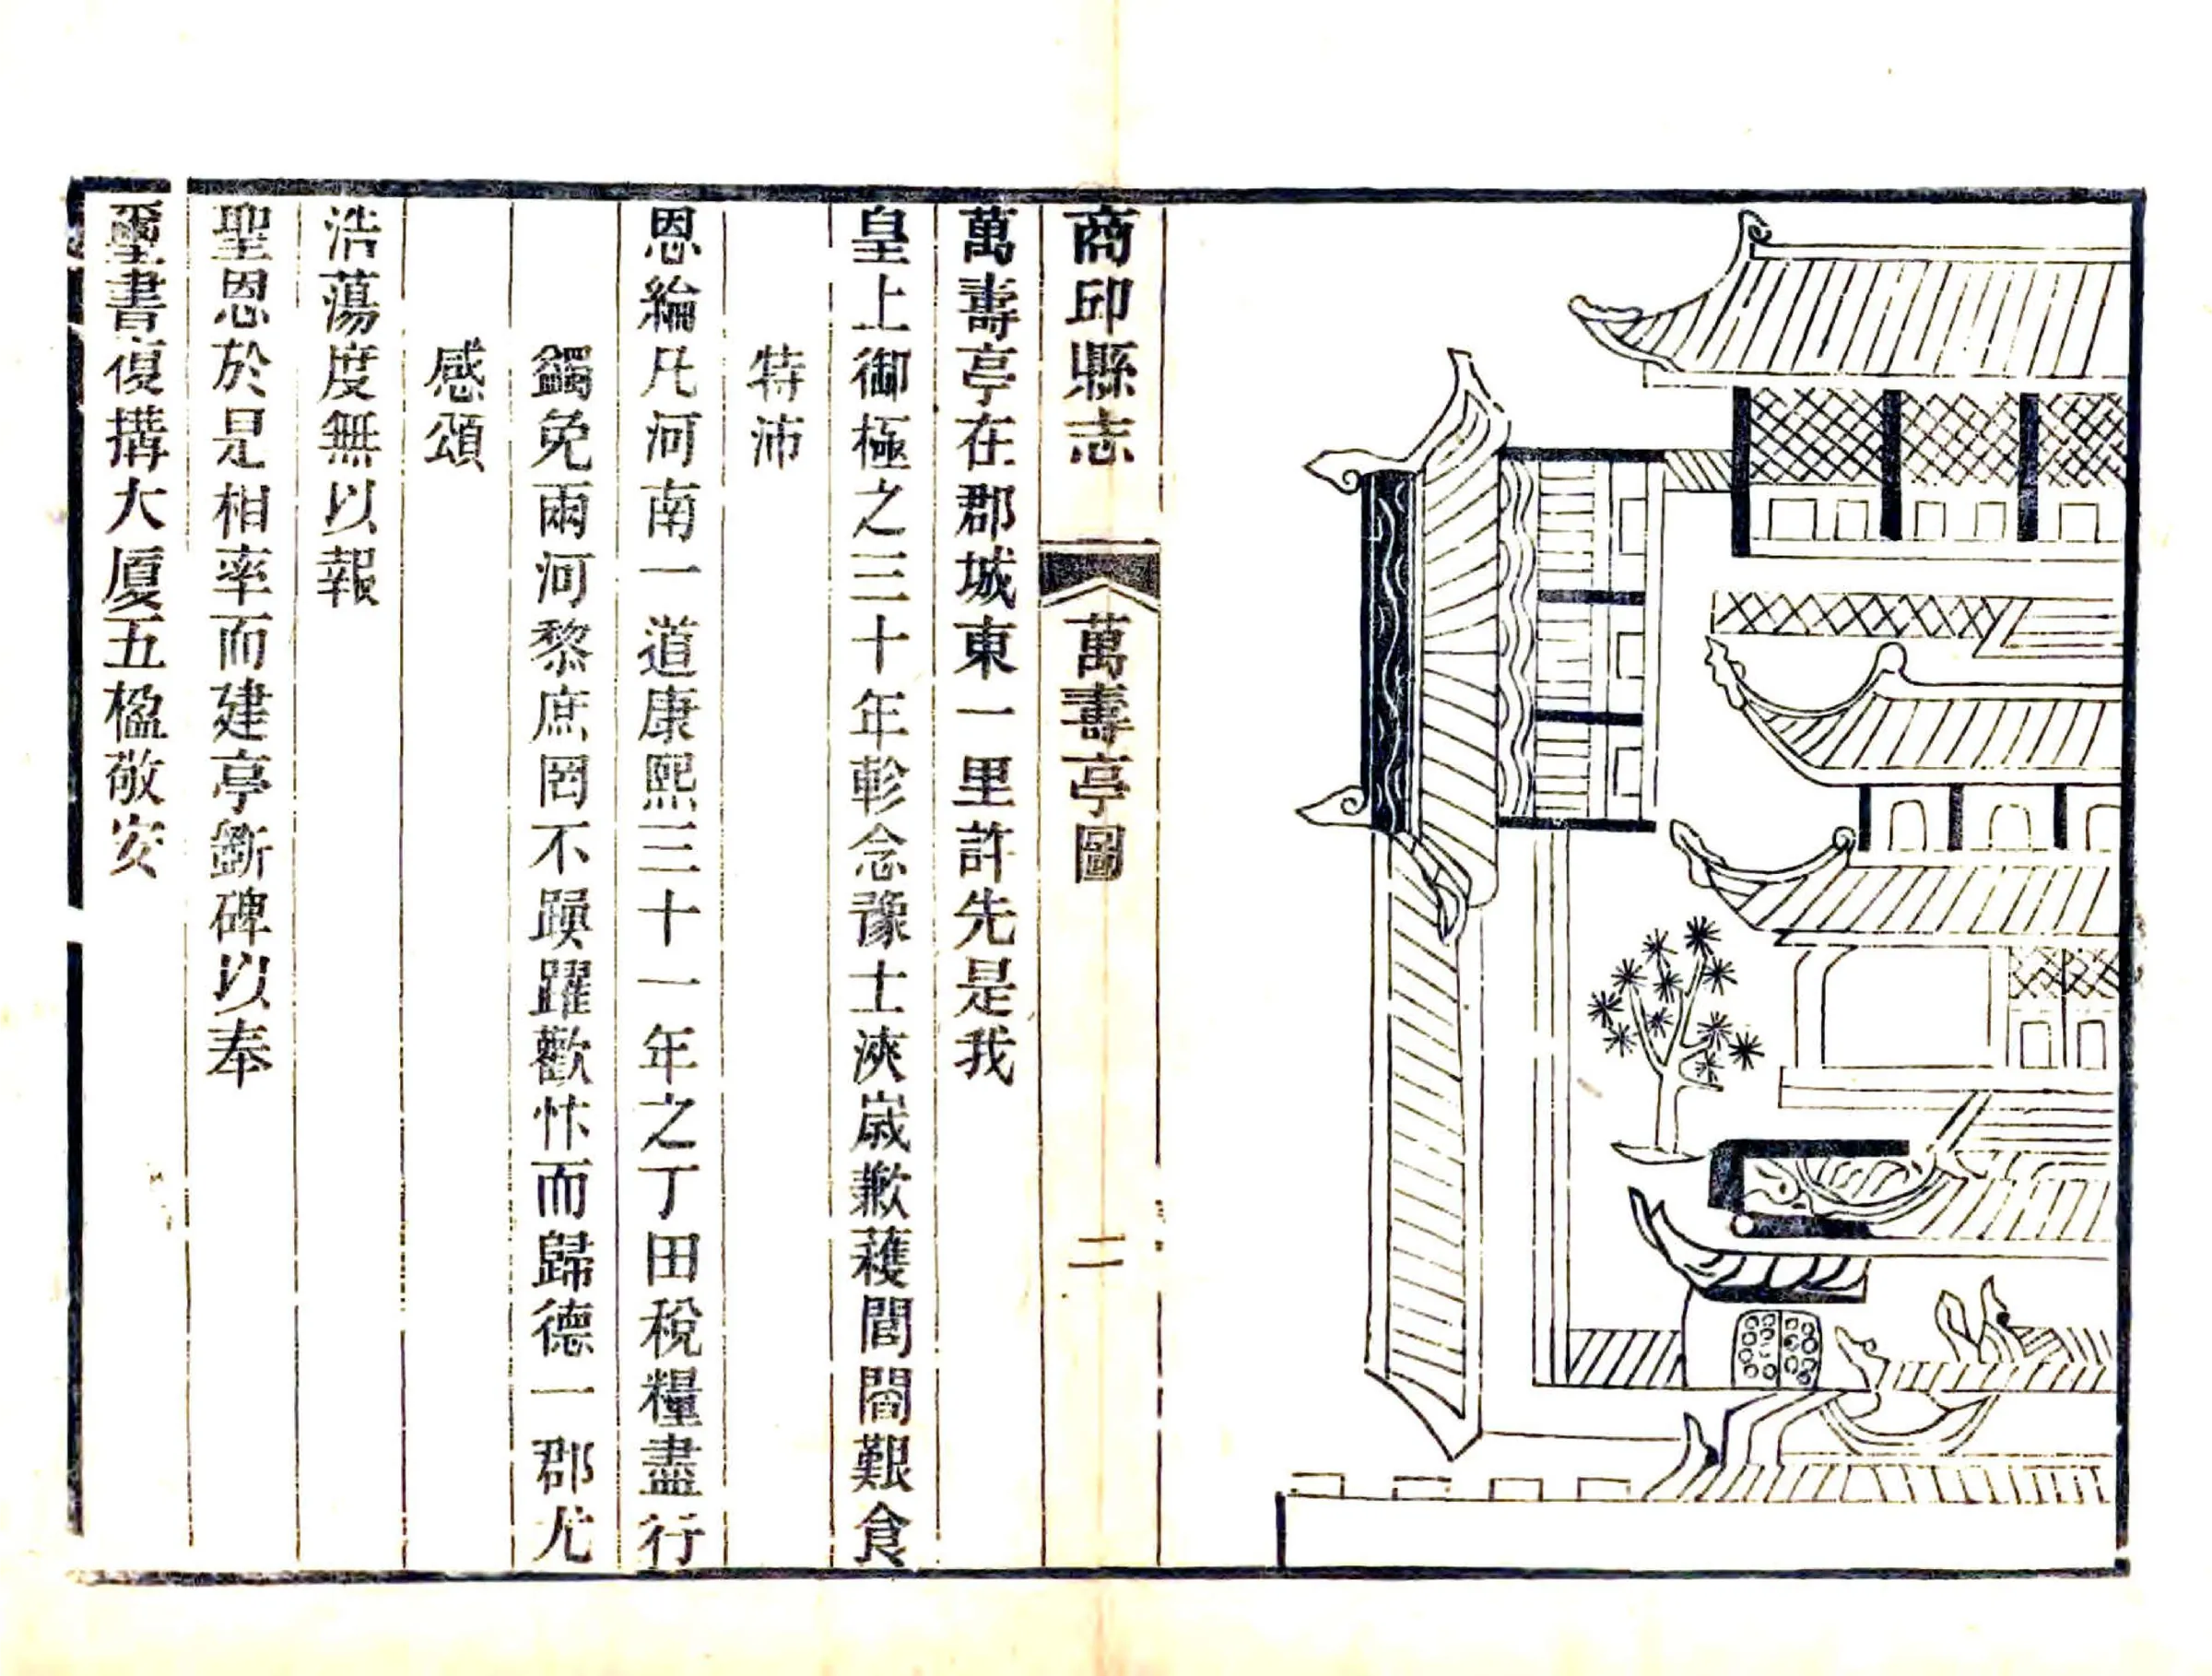 商邱縣志
萬壽亭圖
二
萬壽亭在郡城東一里許先是我
皇上御極之三十年軫念豫士浹歲歉穫閭閻艱食
特沛
恩綸凡河南一道康熙三十一年之丁田稅糧盡行
蠲免兩河黎庶罔不踴躍歡忭而歸德一郡尤
感頌
浩蕩度無以報
聖恩於是相率而建亭斲碑以奉
璽書復搆大廈五楹敬安